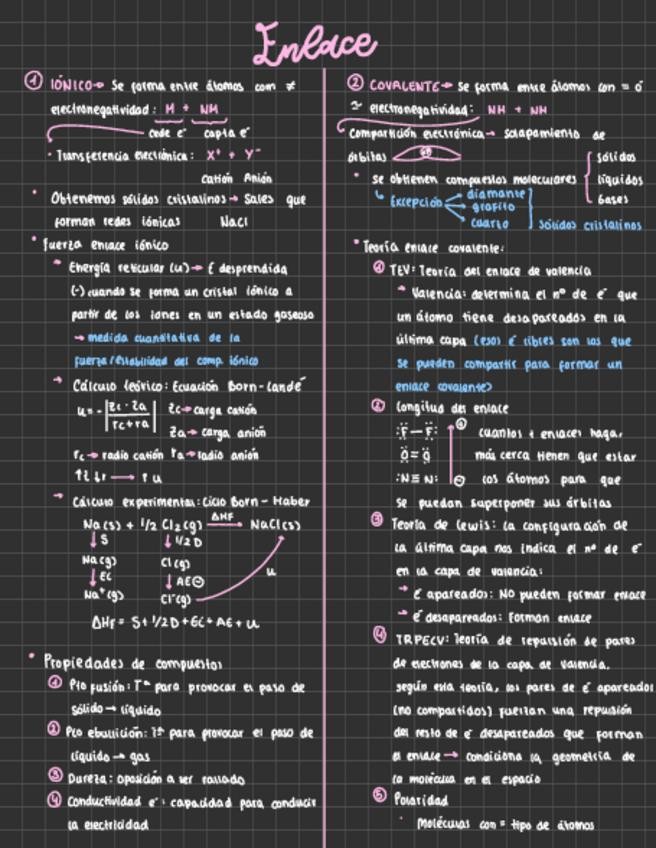 Enlace
① IÓNICO→ Se forma entre átomos con ≠
electronegatividad: M + NM
cede e⁻ capta e⁻
· Transferencia electrónica: X⁺ + Y⁻
catión Anión
· Obtenemos sólidos cristalinos → Sales que
forman redes iónicas NaCl
· Fuerza enlace iónico
→ Energía reticular (u)→ E desprendida
(-) cuando se forma un cristal iónico a
partir de los iones en un estado gaseoso
→ medida cuantitativa de la
fuerza/estabilidad del comp. iónico
→ Cálculo teórico: Ecuación Born-Landé
u = - |Zc · Za / rc + ra| Zc→carga catión
Za→ carga anión
rc→ radio catión ra→radio anión
↑Z ↓r → ↑u
→ Cálculo experimental: Ciclo Born-Haber
Na(s) + 1/2 Cl₂(g) ΔHf→ NaCl(s)
↓S ↓1/2 D
Na(g) Cl(g)
↓EI ↓AE⊖ u
Na⁺(g) Cl⁻(g)
ΔHf = S + 1/2 D + EI + AE + u
· Propiedades de compuestos
① Pto fusión: Tª para provocar el paso de
sólido → líquido
② Pto ebullición: Tª para provocar el paso de
líquido → gas
③ Dureza: oposición a ser rallado
④ Conductividad e⁻: capacidad para conducir
la electricidad
② COVALENTE→ Se forma entre átomos con = ó
≃ electronegatividad: NM + NM
Compartición electrónica→ solapamiento de
órbitas
· Se obtienen compuestos moleculares { sólidos
líquidos
gases
↳ Excepción diamante
grafito
cuarzo } sólidos cristalinos
· Teoría enlace covalente:
① TEV: Teoría del enlace de valencia
→ Valencia: determina el nº de e⁻ que
un átomo tiene desapareados en la
última capa (esos e⁻ libres son los que
se pueden compartir para formar un
enlace covalente)
② Longitud del enlace
:F̈ — F̈: ⊕ cuantos + enlaces haga,
Ö = Ö más cerca tienen que estar
:N ≡ N: ⊖ los átomos para que
se puedan superponer sus órbitas
③ Teoría de Lewis: la configuración de
la última capa nos indica el nº de e⁻
en la capa de valencia:
→ e⁻ apareados: NO pueden formar enlace
→ e⁻ desapareados: Forman enlace
④ TRPECV: Teoría de repulsión de pares
de electrones de la capa de valencia.
según esta teoría, los pares de e⁻ apareados
(no compartidos) fuerzan una repulsión
del resto de e⁻ desapareados que forman
el enlace → condiciona la geometría de
la molécula en el espacio
⑤ Polaridad
· Moléculas con = tipo de átomos